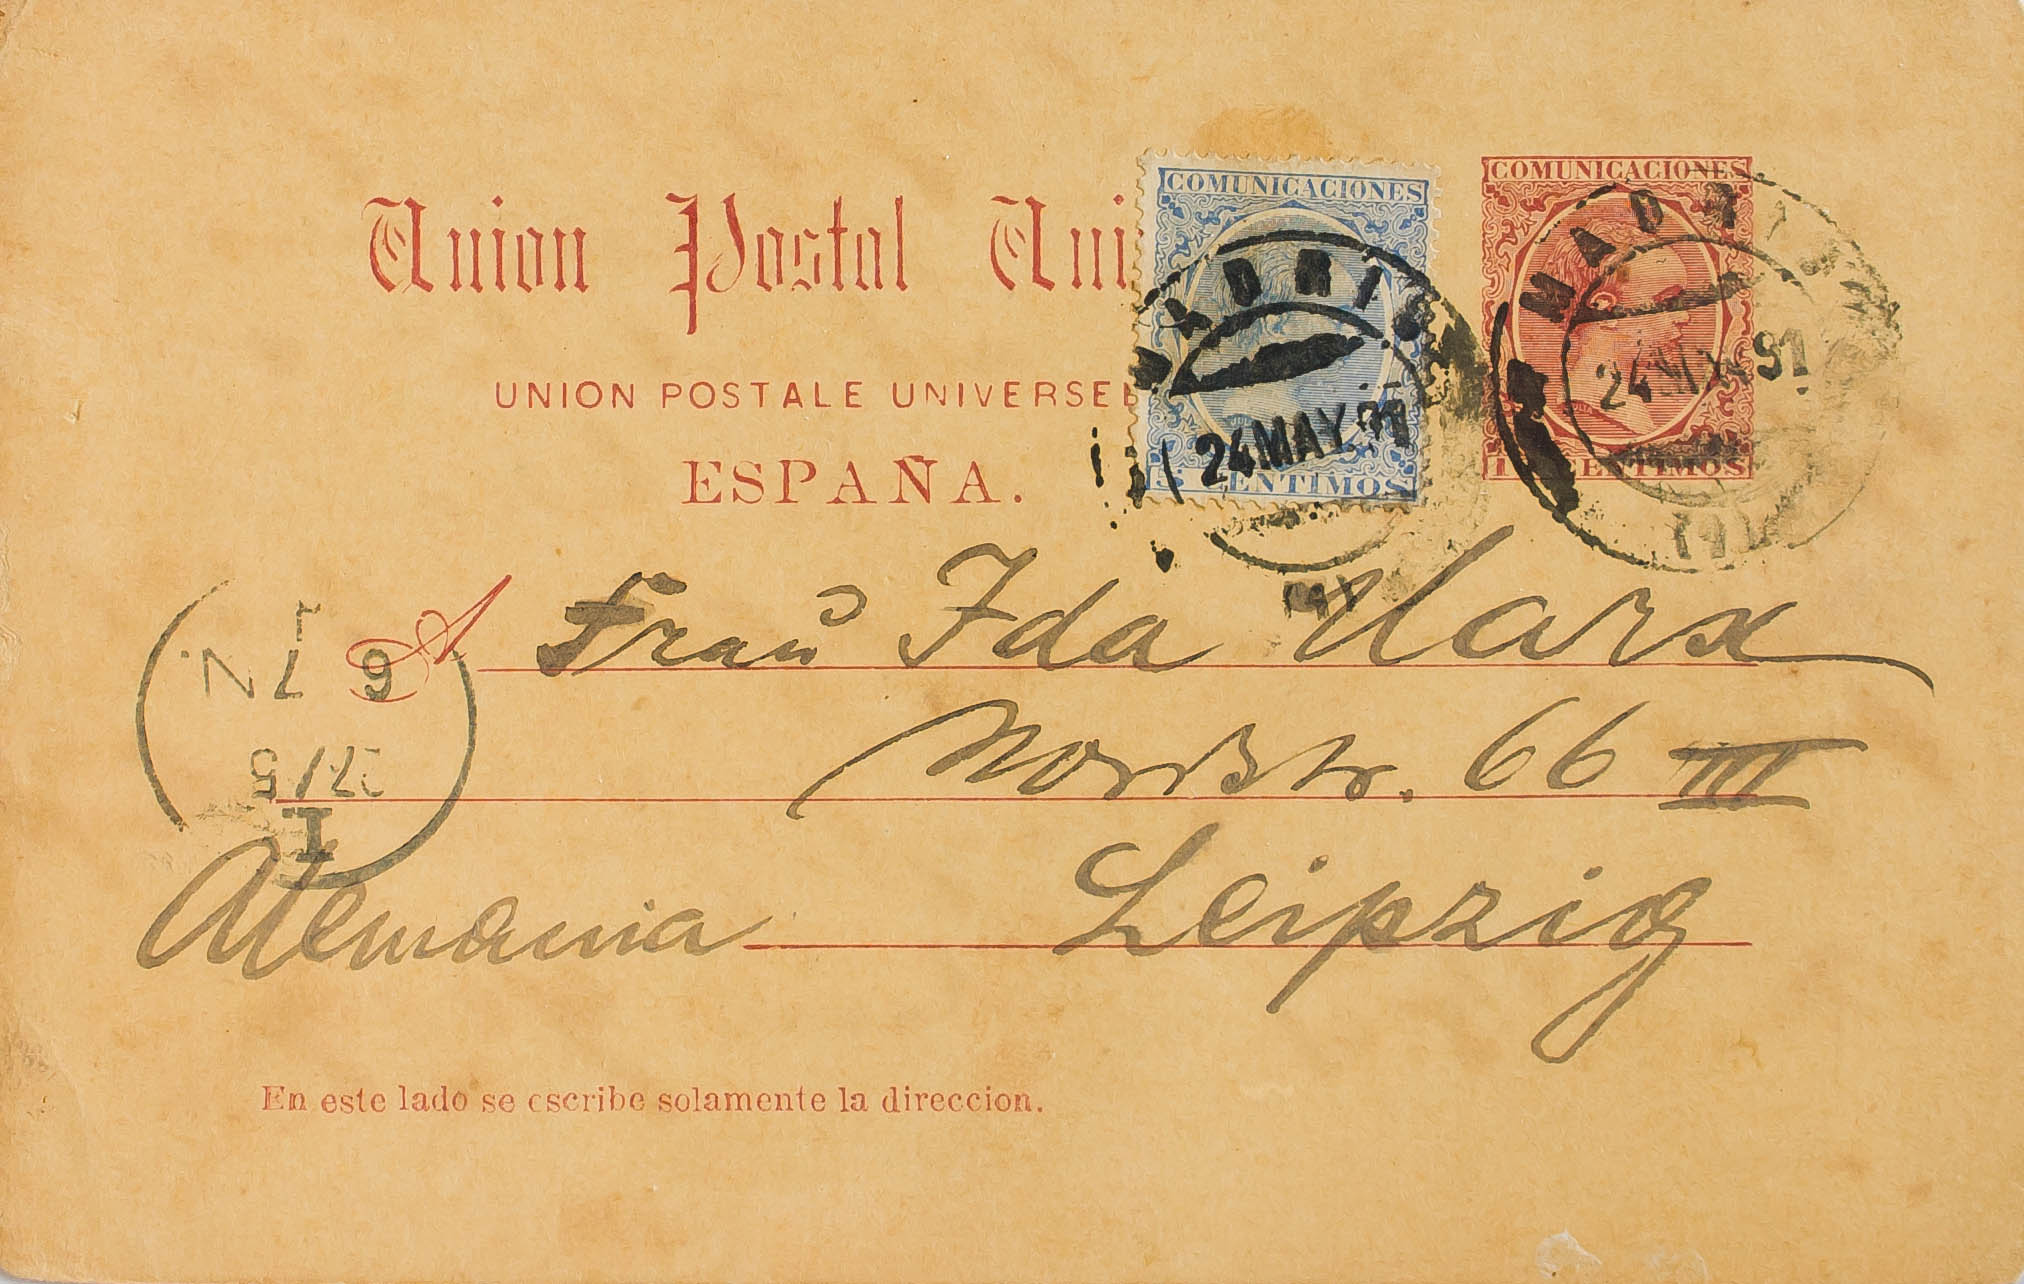 Union Postal Uni
UNION POSTALE UNIVERSE
ESPAÑA.
COMUNICACIONES
5 CENTIMOS
MADRID
24 MAY 91
COMUNICACIONES
CENTIMOS
MADRID
24 MAY 91
A Frau Ida Marx
Nordstr. 66 III
Alemania Leipzig
I
27/5
6 7 N.
1
En este lado se escribe solamente la direccion.